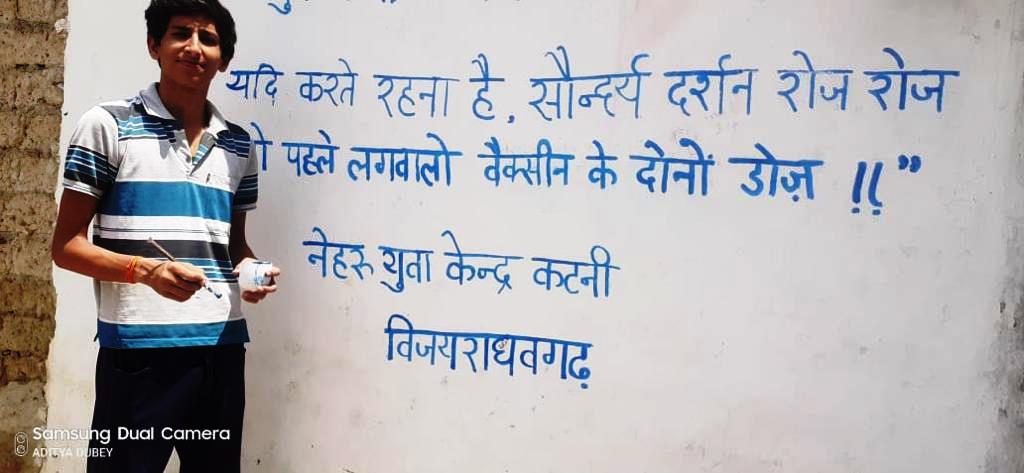 यदि करते रहना है, सौन्दर्य दर्शन रोज रोज
पहले लगवालो वैक्सीन के दोनों डोज़ !!"
नेहरू युवा केन्द्र कटनी
विजयराघवगढ़
Samsung Dual Camera
ADITYA DUBEY